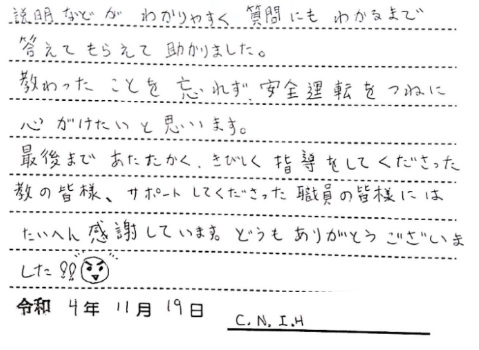 説明などが わかりやすく 質問にも わかるまで
答えて もらえて 助かりました。
教わった ことを 忘れず、安全運転を つねに
心がけたいと思います。
最後まで あたたかく、きびしく 指導をしてくださった
教の皆様、サポートしてくださった 職員の皆様には
たいへん 感謝しています。どうも ありがとう ございま
した!!
令和 4年 11月 19日
C.N.I.H